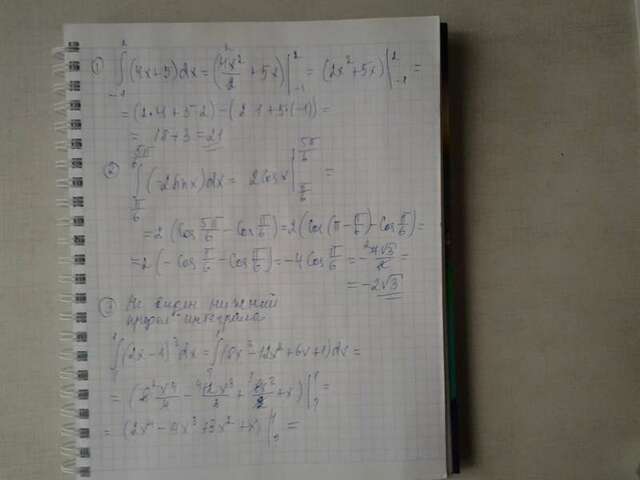 ① ∫₋₁² (4x+5)dx = (4x²/2 + 5x)|₋₁² = (2x²+5x)|₋₁² =
= (2·4+5·2) - (2·1+5·(-1)) =
= 18+3 = 21
② ∫_{π/6}^{5π/6} (-2sinx)dx = 2cosx|_{π/6}^{5π/6} =
= 2(cos 5π/6 - cos π/6) = 2(cos(π - π/6) - cos π/6) =
= 2(-cos π/6 - cos π/6) = -4cos π/6 = -4√3/2 =
= -2√3
③ Не виден нижний
предел интеграла
∫ (2x-1)³dx = ∫ (8x³-12x²+6x+1)dx =